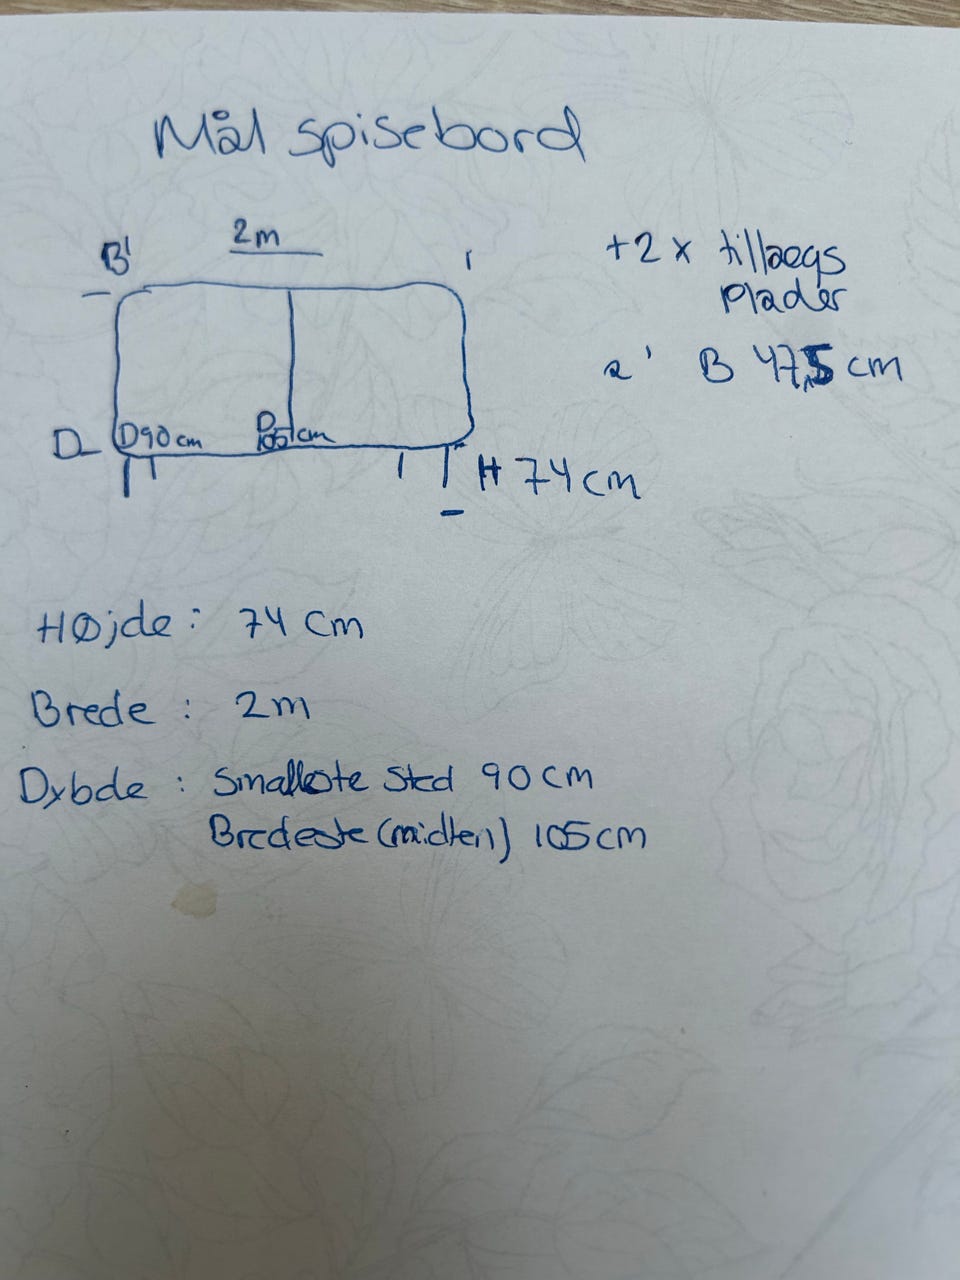 Mål spisebord
2m
B
+2 x tillægs
plader
a' B 47,5 cm
D
D90cm
D
105 cm
H 74 cm
Højde : 74 cm
Brede : 2m
Dybde : Smalleste sted 90 cm
Bredeste (midten) 105 cm